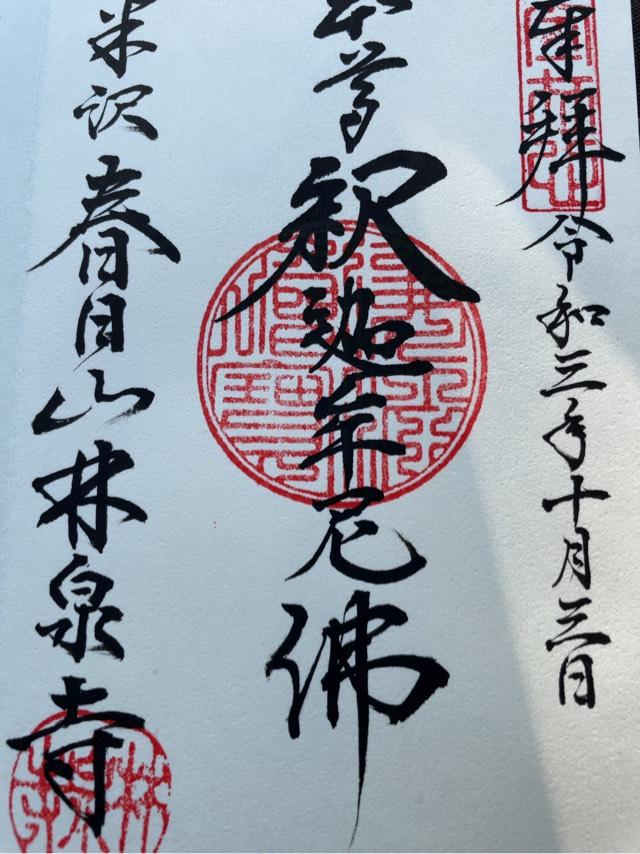 奉拝 令和三年十月三日
本尊 釈迦牟尼佛
米沢 春日山林泉寺